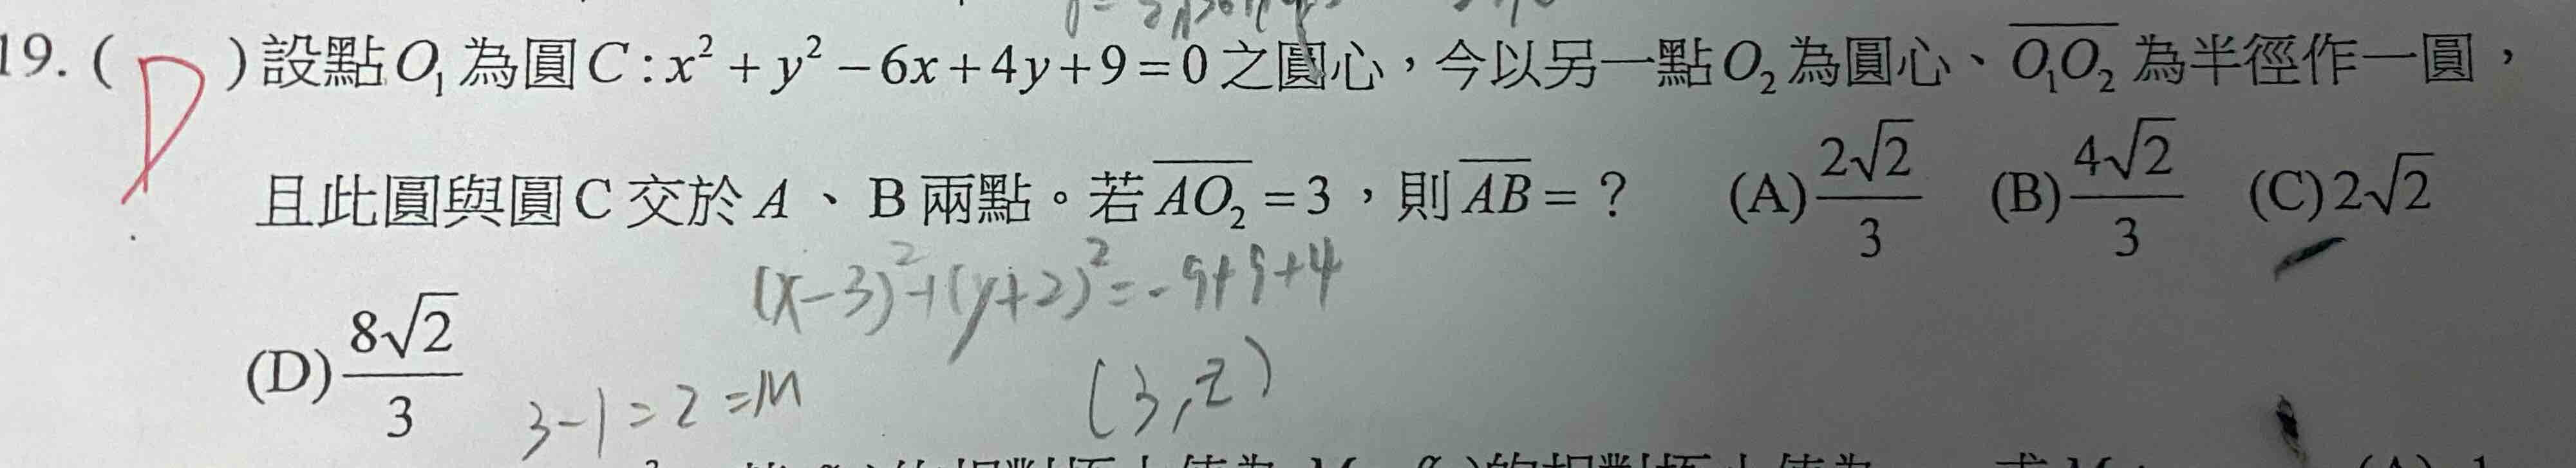 19. ( D ) 設點 O₁ 為圓 C : x² + y² − 6x + 4y + 9 = 0 之圓心，今以另一點 O₂ 為圓心、O₁O₂ 為半徑作一圓，
且此圓與圓 C 交於 A 、 B 兩點。若 AO₂ = 3 ，則 AB = ？ (A) 2√2/3 (B) 4√2/3 (C) 2√2
(x-3)²+(y+2)²=-9+9+4
(D) 8√2/3
3-1=2=M
(3,2)